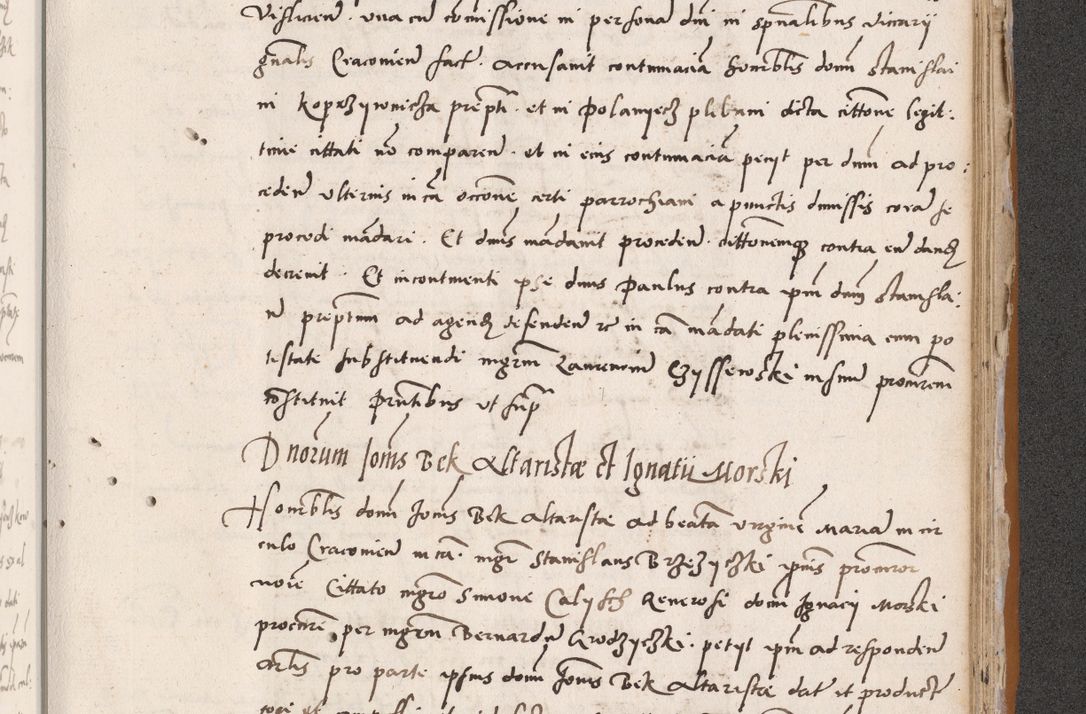 Visliciens. una cum comissione in persona dni in spualibus vicarii
gnalis Cracovien fact. accusavit contumaciã honorblis domi Stanislai
in Koprzywnicha prepti. et in Polaniecz plibani dicta cittone legit:
time cittati nõ comparen. et in eius contumaciã petyt per dnm ad pro:
ceden ulterius in cã occone certi parrochiani a punctis dimissis corã se
procedi mãdari. Et dnus mãdavit proceden. cittonemq contra eũ dandã
decrevit. Et incontinenti pse dnus Paulus contra ipm dnm Stanisla:
ũ preptum ad agendũ defenden re in cã mãdati plenissima cum po
testate substituendi mgrm Laurenciũ Czyssewski in suũ procurem
constituit Pntibus ut supra
Dnorum Joñis Bek Altaristæ et Ignatii Morski
Honorblis domi Joñis Bek altaristæ ad beatã virginẽ Mariã in cir
culo Cracovien in cã. mgr Stanislaus Brzezyczki ipius procuror
noie Cittato mgro Simone Calyssz Generosi domi Ignacii Morski
procure per mgrm Bernardũ Grodzyczki. petyt ipm ad responden
artlis pro parte ipsius domi Joñis Bek Altaristæ dat et product